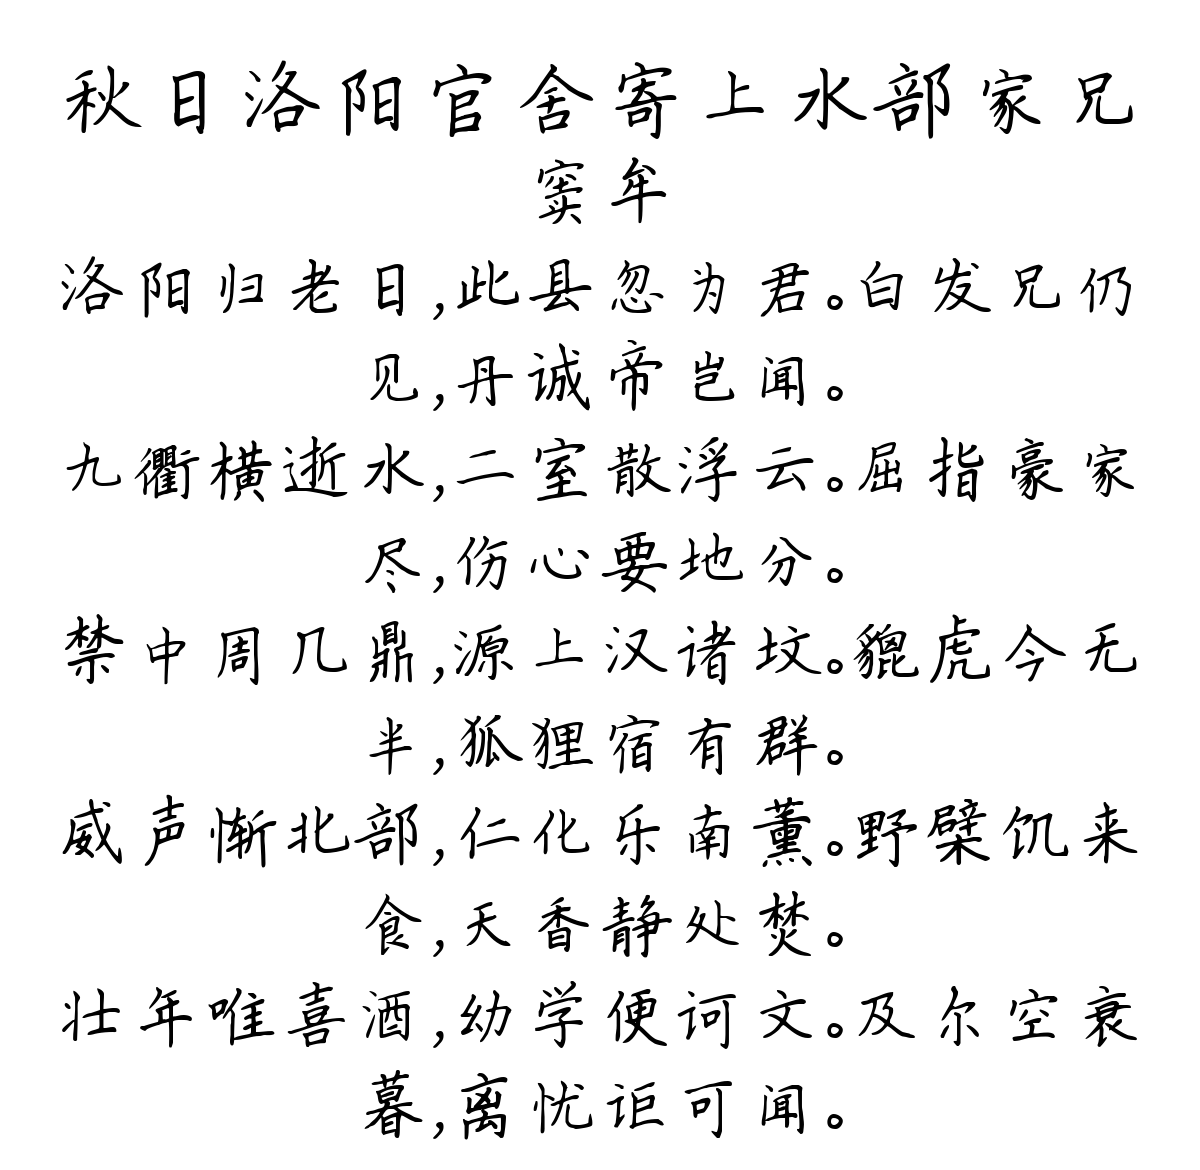 秋日洛阳官舍寄上水部家兄
窦牟
洛阳归老日,此县忽为君。白发兄仍
见,丹诚帝岂闻。
九衢横逝水,二室散浮云。屈指豪家
尽,伤心要地分。
禁中周几鼎,源上汉诸坟。貔虎今无
半,狐狸宿有群。
威声惭北部,仁化乐南薰。野檗饥来
食,天香静处焚。
壮年唯喜酒,幼学便诃文。及尔空衰
暮,离忧讵可闻。